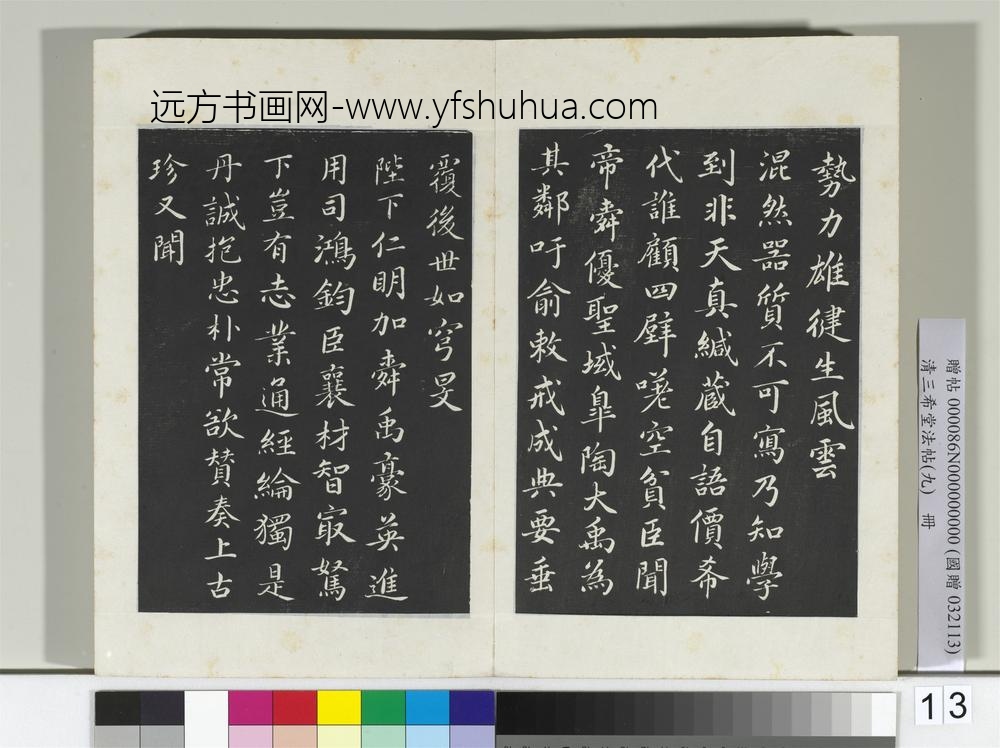 远方书画网-www.yfshuhua.com
勢力雄健生風雲
混然器質不可寫乃知學
到非天真緘藏自語價希
代誰顧四壁嗟空貧臣聞
帝舜優聖域臯陶大禹為
其鄰吁俞敕戒成典要垂
覆後世如穹旻
陛下仁明加舜禹豪英進
用司鴻鈞臣襄材智㝡駑
下豈有志業通經綸獨是
丹誠抱忠朴常欲賛奏上古
珍又聞
贈帖 000086N000000000 (國贈 032113)
清三希堂法帖(九) 冊
13